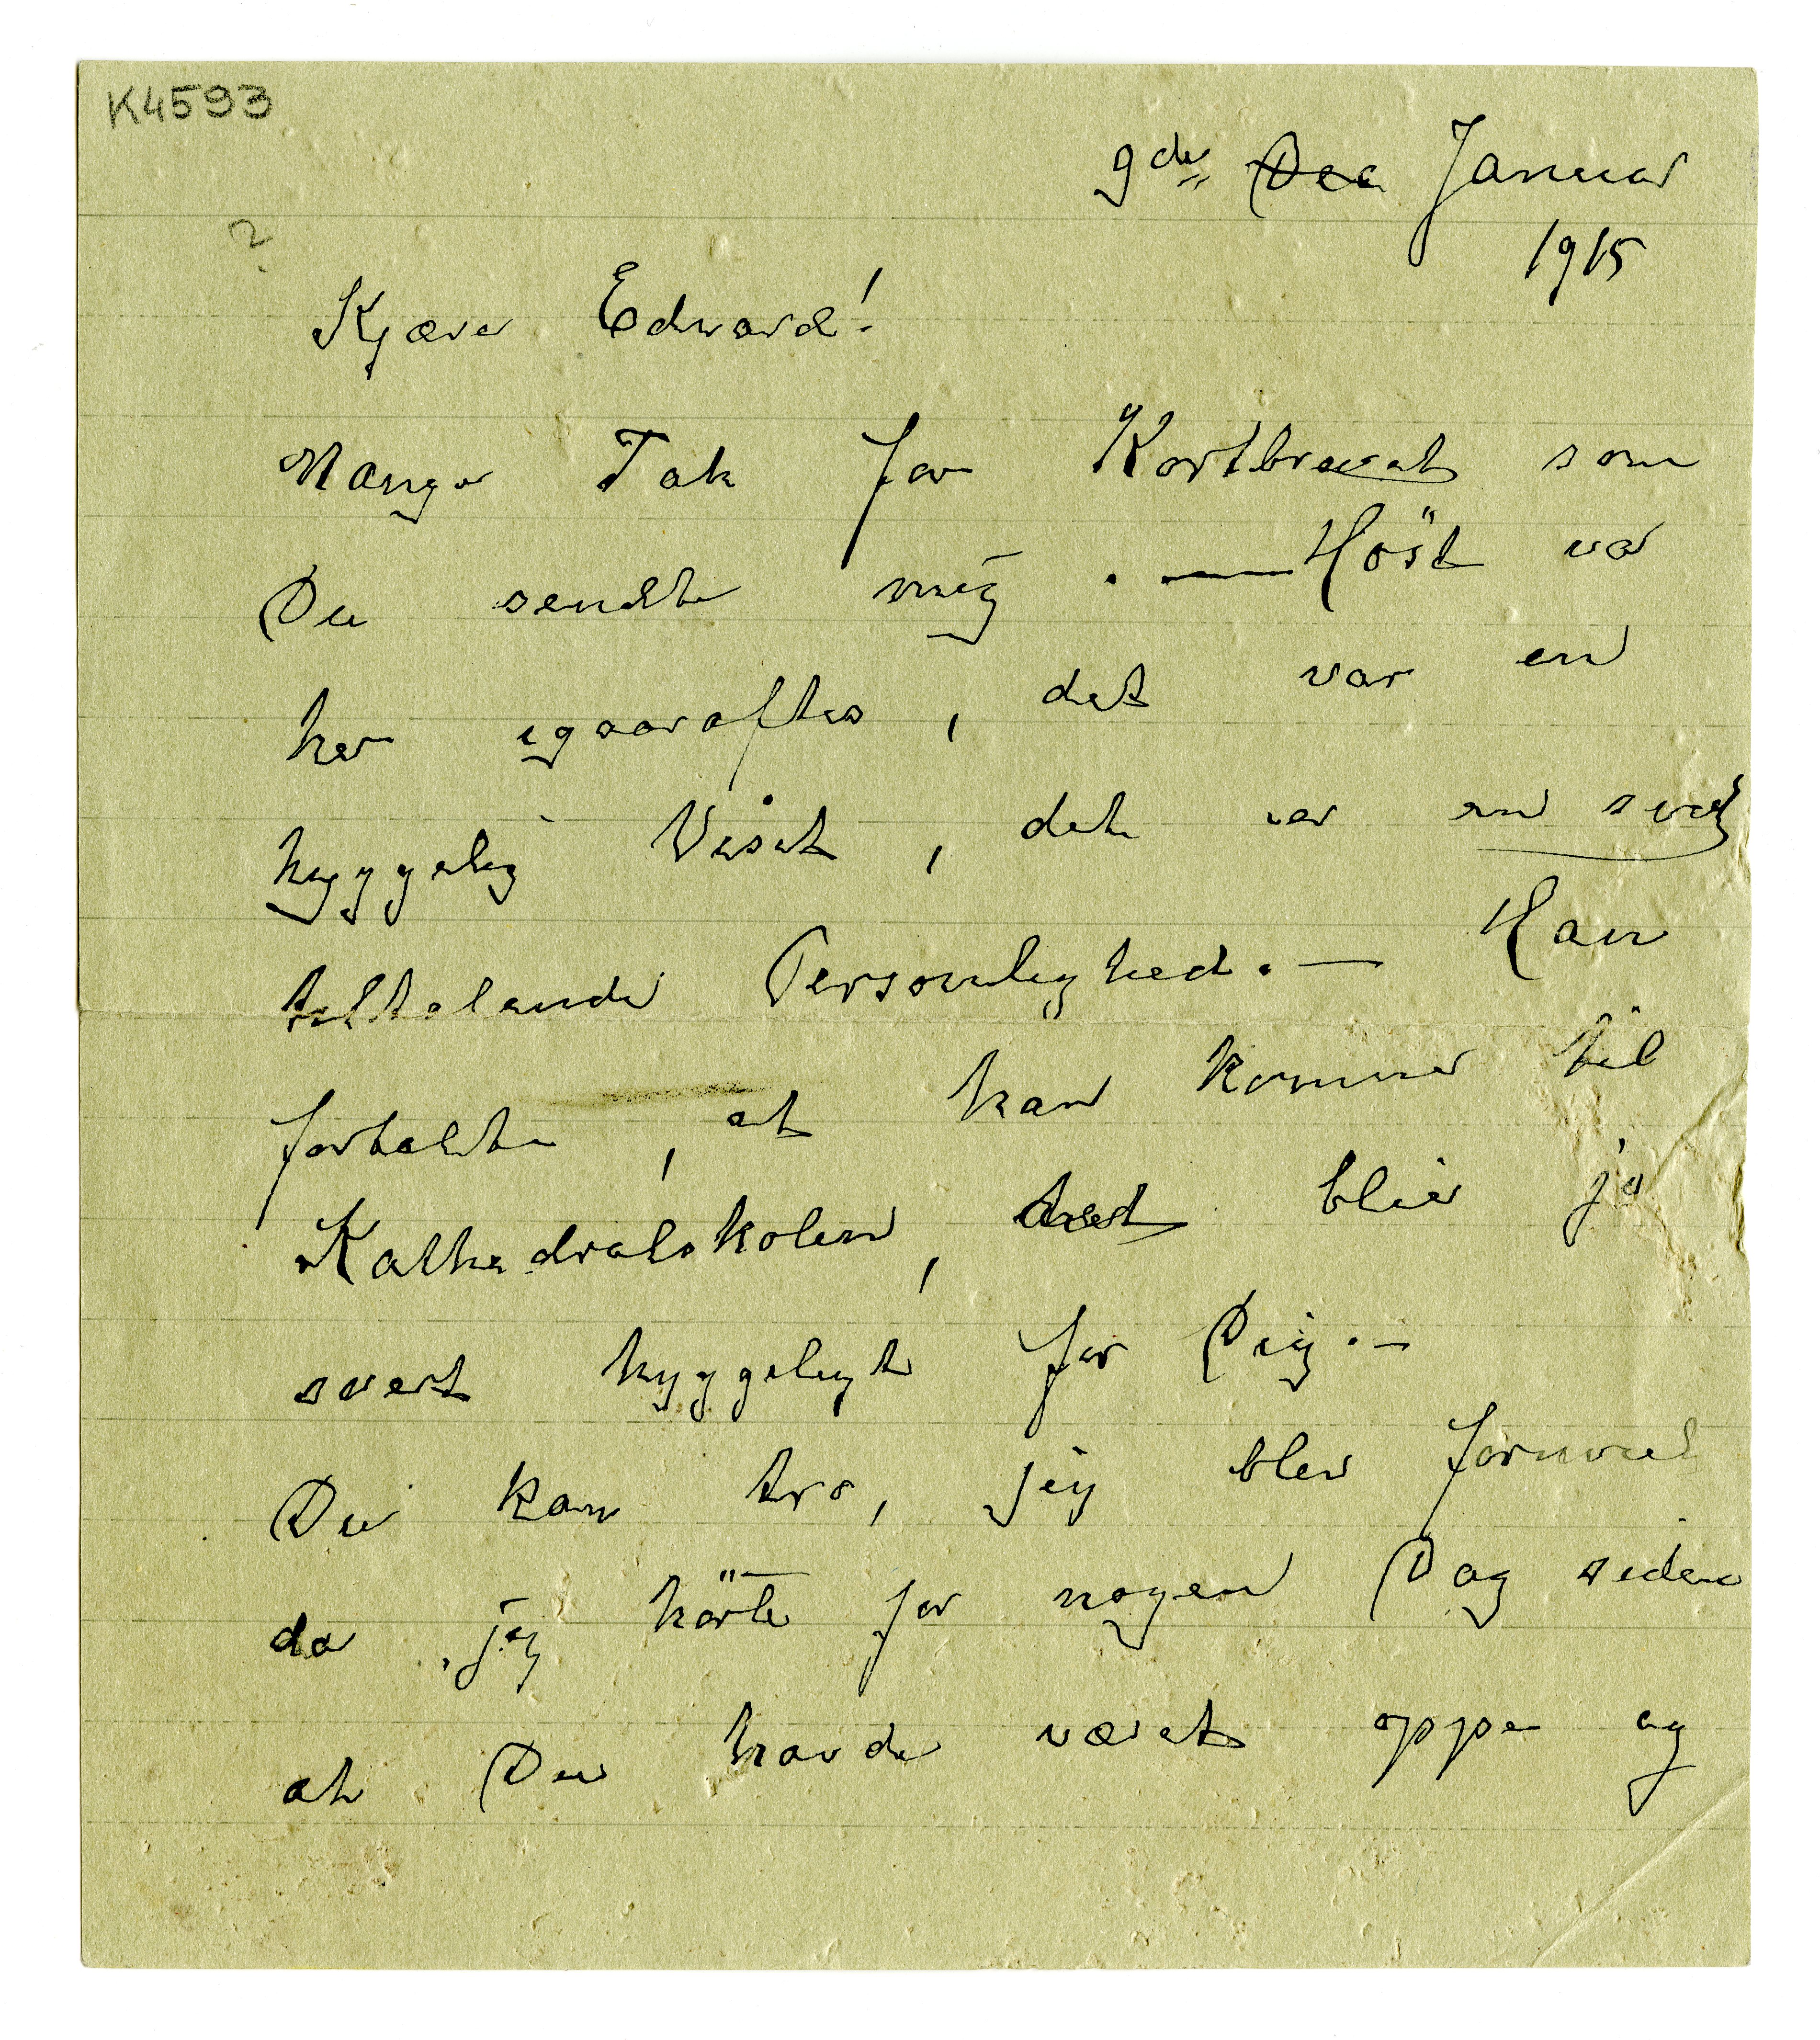 K4593
9de Dec Januar
1915
?
Kjære Edvard!
Mange Tak for Kortbrevet som
Du sendte mig. — Höst var
her igaaraftes, det var en
hyggelig Visit, det er en svært
tiltalende Personlighed. — Han
fortalte, at han kommer til
Kathedralskolen, det blir jo
svert hyggeligt for Dig. —
Du kan tro, jeg blev fornøiet
da jeg hörte for nogen Dag siden
at Du havde været oppe og